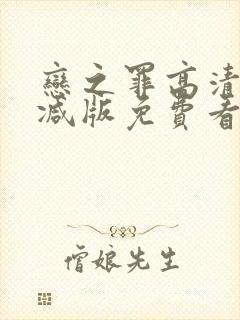 戀之罪高清
减版免費看
僧娘先生